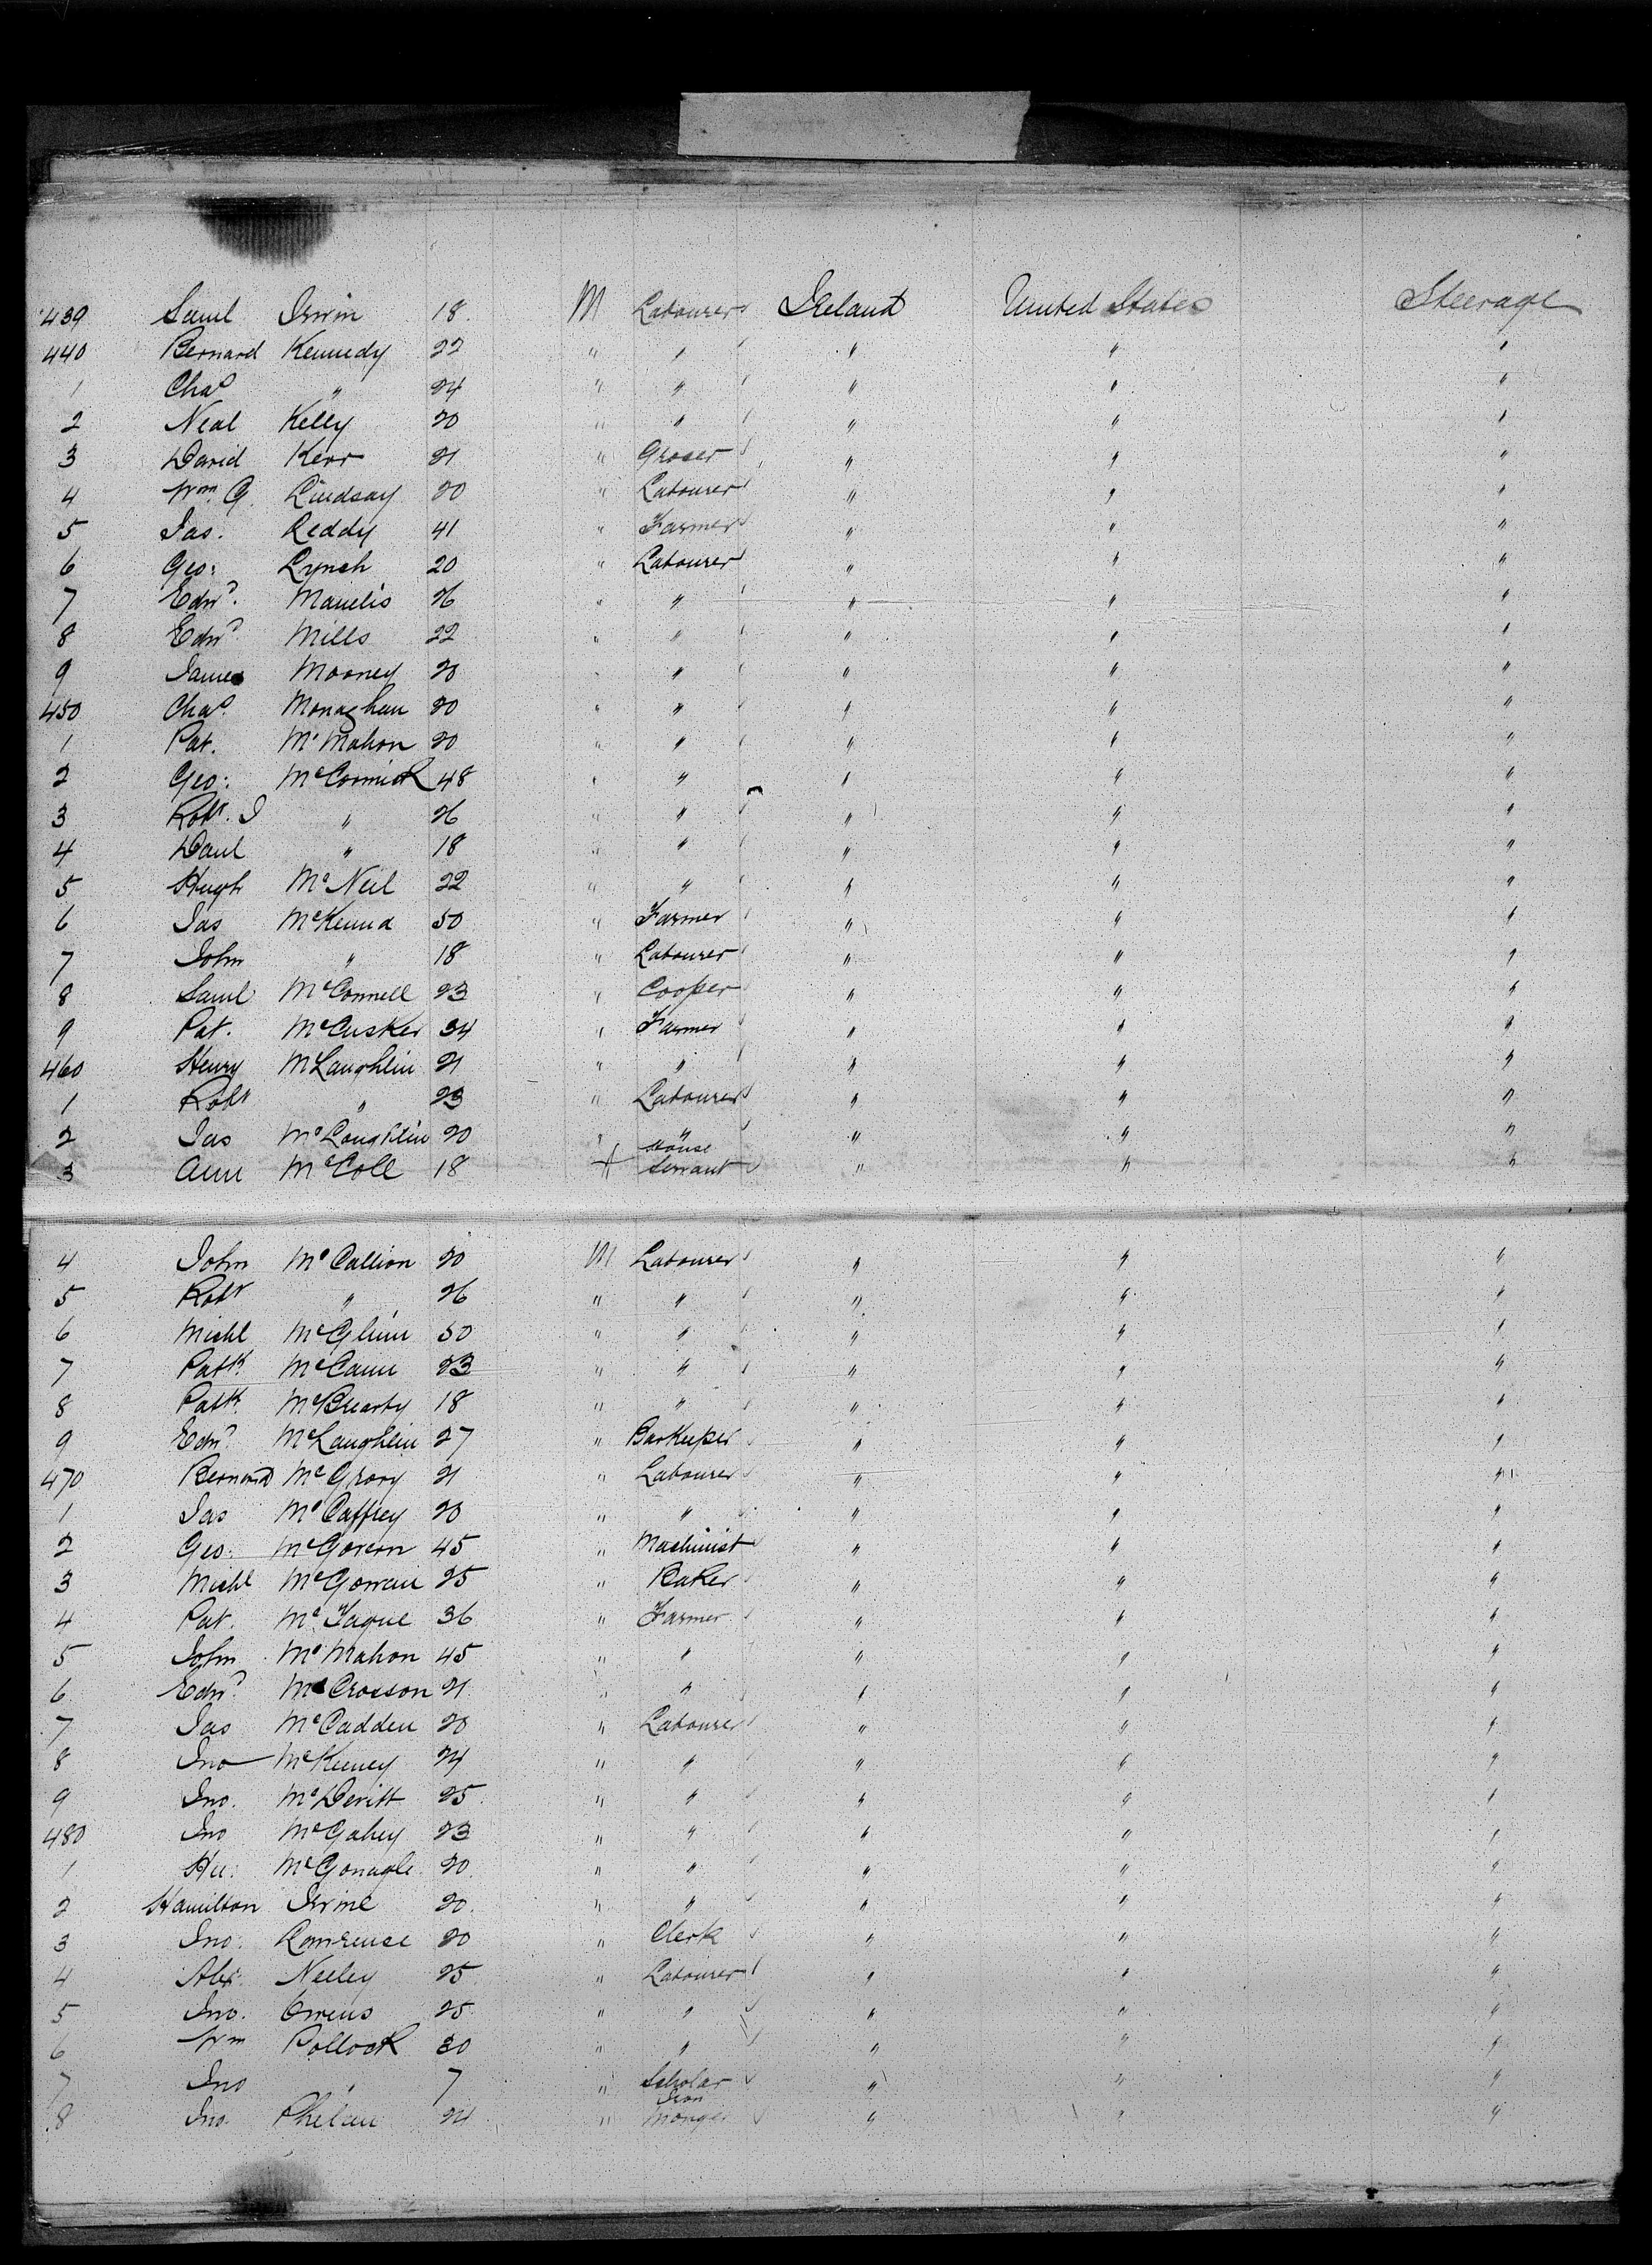 439 Saml Irwin 18 M Labourer Ireland United States Steerage
440 Bernard Kennedy 22 " " " " "
1 Chas " 24 " " " " "
2 Neal Kelly 20 " " " " "
3 David Kerr 21 " Grocer " " "
4 Wm. G. Lindsay 20 " Labourer " " "
5 Jas. Leddy 41 " Farmer " " "
6 Geo: Lynch 20 " Labourer " " "
7 Edwd. 26 " " " " "
8 Edwd Mills 22 " " " " "
9 James Mooney 20 " " " " "
450 Chas. Monaghan 20 " " " " "
1 Pat. McMahon 20 " " " " "
2 Geo: McCormick 48 " " " " "
3 Robt. J " 26 " " " " "
4 Danl " 18 " " " " "
5 Hugh McNeil 22 " " " " "
6 Jas McKenna 50 " Farmer " " "
7 John " 18 " Labourer " " "
8 Saml McConnell 23 " Cooper " " "
9 Pat. McCusker 34 " Farmer " " "
460 Henry McLaughlin 21 " " " " "
1 Robt " 23 " Labourer " " "
2 Jas McLoughlin 20 " " " " "
3 Ann McColl 18 f House Servant " " "
4 John McCallion 20 M Labourer " " "
5 Robt " 26 " " " " "
6 Michl McGlinn 50 " " " " "
7 Patk. McCann 23 " " " " "
8 Patk. McBrearty 18 " " " " "
9 Edwd McLaughlin 27 " Barkeeper " " "
470 Bernard McGrory 21 " Labourer " " "
1 Jas McCaffrey 20 " " " " "
2 Geo: McGovern 45 " Machinist " " "
3 Michl McGowan 25 " Baker " " "
4 Pat. McTague 36 " Farmer " " "
5 John McMahon 45 " " " " "
6 Edwd McCrosson 21 " " " " "
7 Jas McCadden 20 " Labourer " " "
8 Jno 24 " " " " "
9 Jno. McDevitt 25 " " " " "
480 Jno McGahey 23 " " " " "
1 Hu: McGonagle 20 " " " " "
2 Hamilton Irvine 20 " " " " "
3 Jno. Lawrence 20 " Clerk " " "
4 Alex Neeley 25 " Labourer " " "
5 Jno. Owens 25 " " " " "
6 Wm Pollock 30 " " " " "
7 Jno " 7 " Scholar " " "
8 Jno. Phelan 24 " Iron Monger " " "